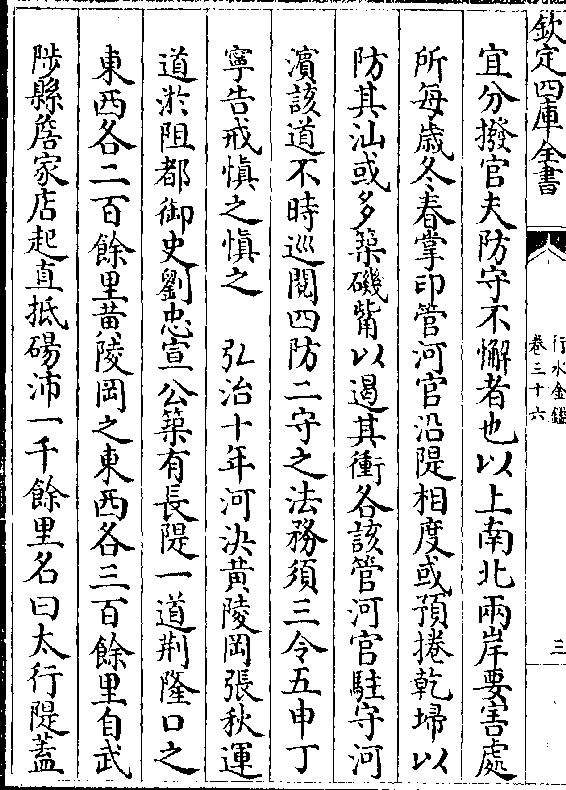 欽定四庫全書
行水金鑑
卷三十六
三
宜分撥官夫防守不懈者也以上南北兩岸要害處
所每歲冬春掌印管河官沿隄相度或預捲乾埽以
防其汕或多築磯觜以遏其衝各該管河官駐守河
濵該道不時巡閱四防二守之法務須三令五申丁
寧告戒慎之慎之　弘治十年河決黃陵岡張秋運
道淤阻都御史劉忠宣公築有長隄一道荆隆口之
東西各二百餘里黃陵岡之東西各三百餘里自武
陟縣詹家店起直抵碭沛一千餘里名曰太行隄蓋